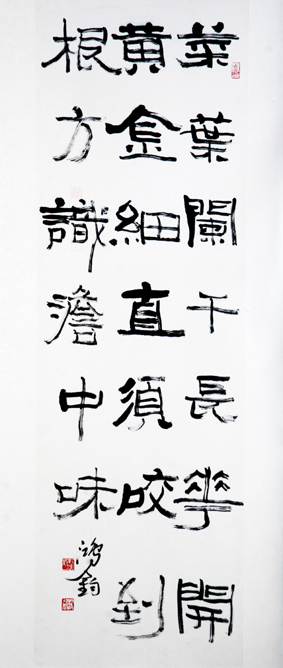 菜葉闌干長華開
黄金細直須咬到
根方識澹中味
鴻鈞